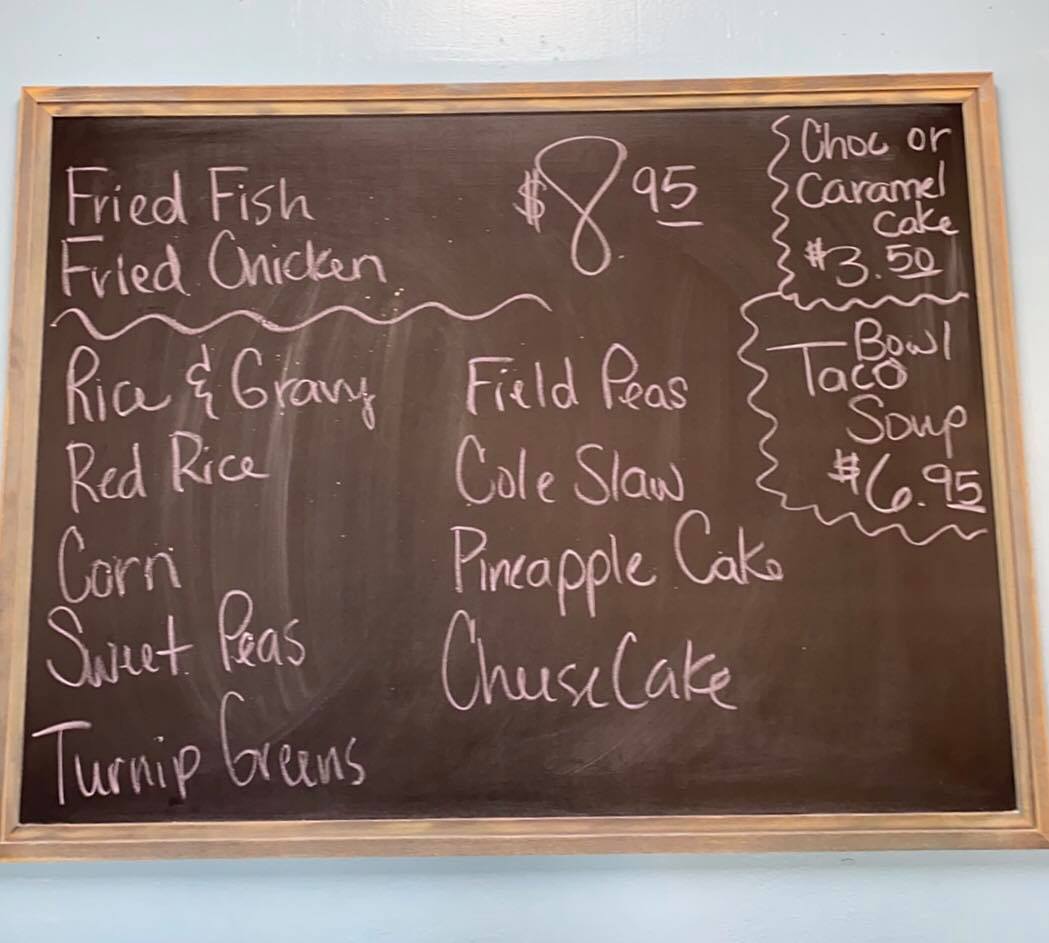 Fried Fish
Fried Chicken
$8.95
Rice & Gravy
Red Rice
Corn
Sweet Peas
Turnip Greens
Field Peas
Cole Slaw
Pineapple Cake
Cheese Cake
Choc or
Caramel
Cake
$3.50
Bowl
Taco
Soup
$6.95